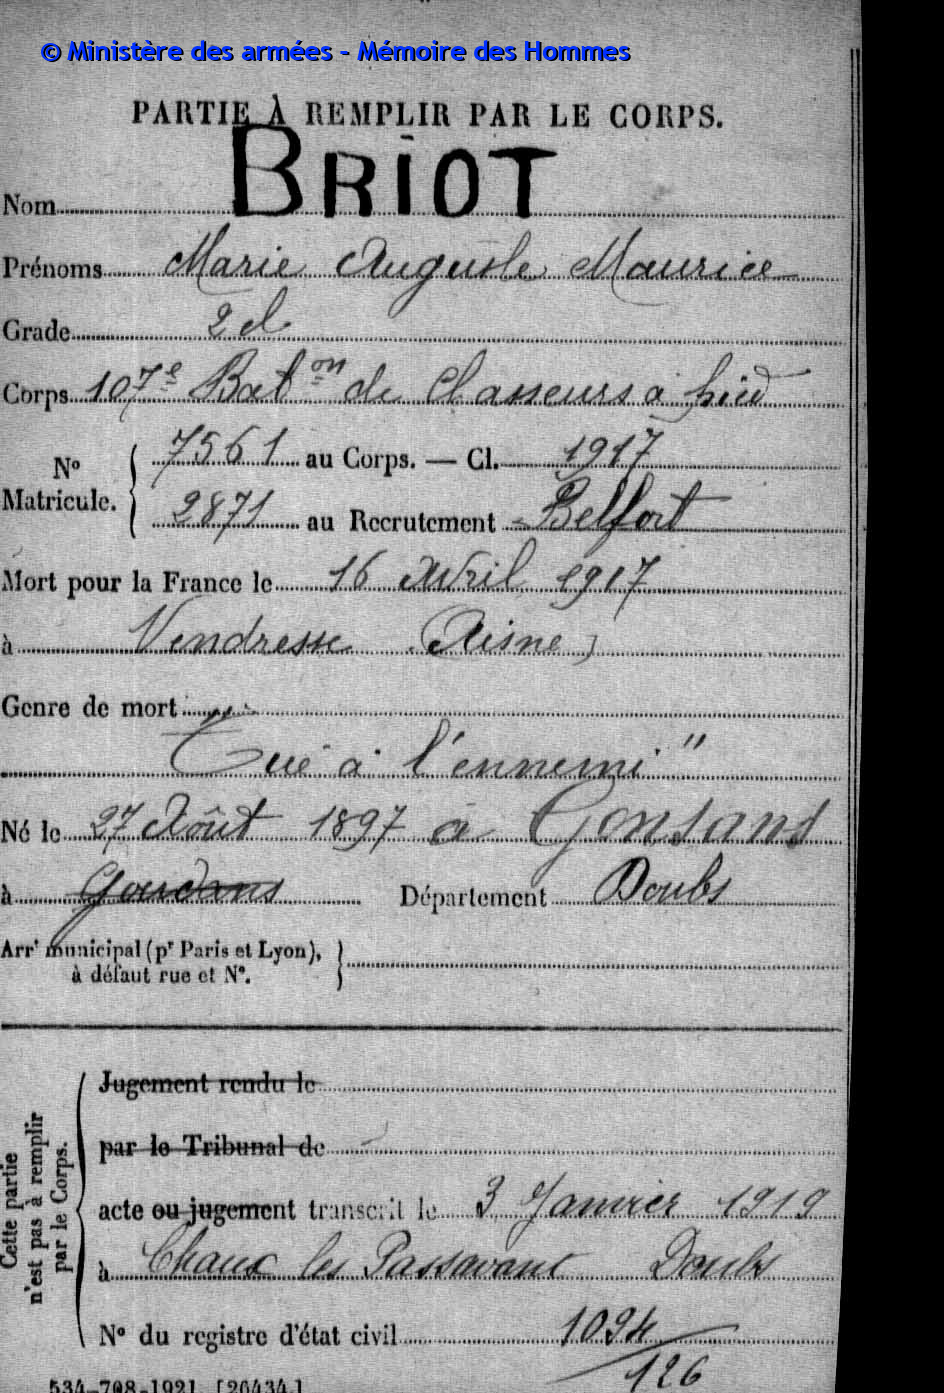 © Ministère des armées - Mémoire des Hommes
PARTIE À REMPLIR PAR LE CORPS.
Nom BRIOT
Prénoms Marie Auguste Maurice
Grade 2 cl
Corps 107e Baton de Chasseurs à pied
No Matricule. { 7561 au Corps. — Cl. 1917
2871 au Recrutement Belfort
Mort pour la France le 16 Avril 1917
à Vendresse (Aisne)
Genre de mort
"Tué à l'ennemi"
Né le 27 Août 1897 à Gonsans
à Goudans Département Doubs
Arrt municipal (pr Paris et Lyon), à défaut rue et No. }
Cette partie n'est pas à remplir par le Corps.
Jugement rendu le
par le Tribunal de
acte ou jugement transcrit le 3 Janvier 1919
à Chaux les Passavant Doubs
No du registre d'état civil 1094/126
534-708-1921. [26434.]